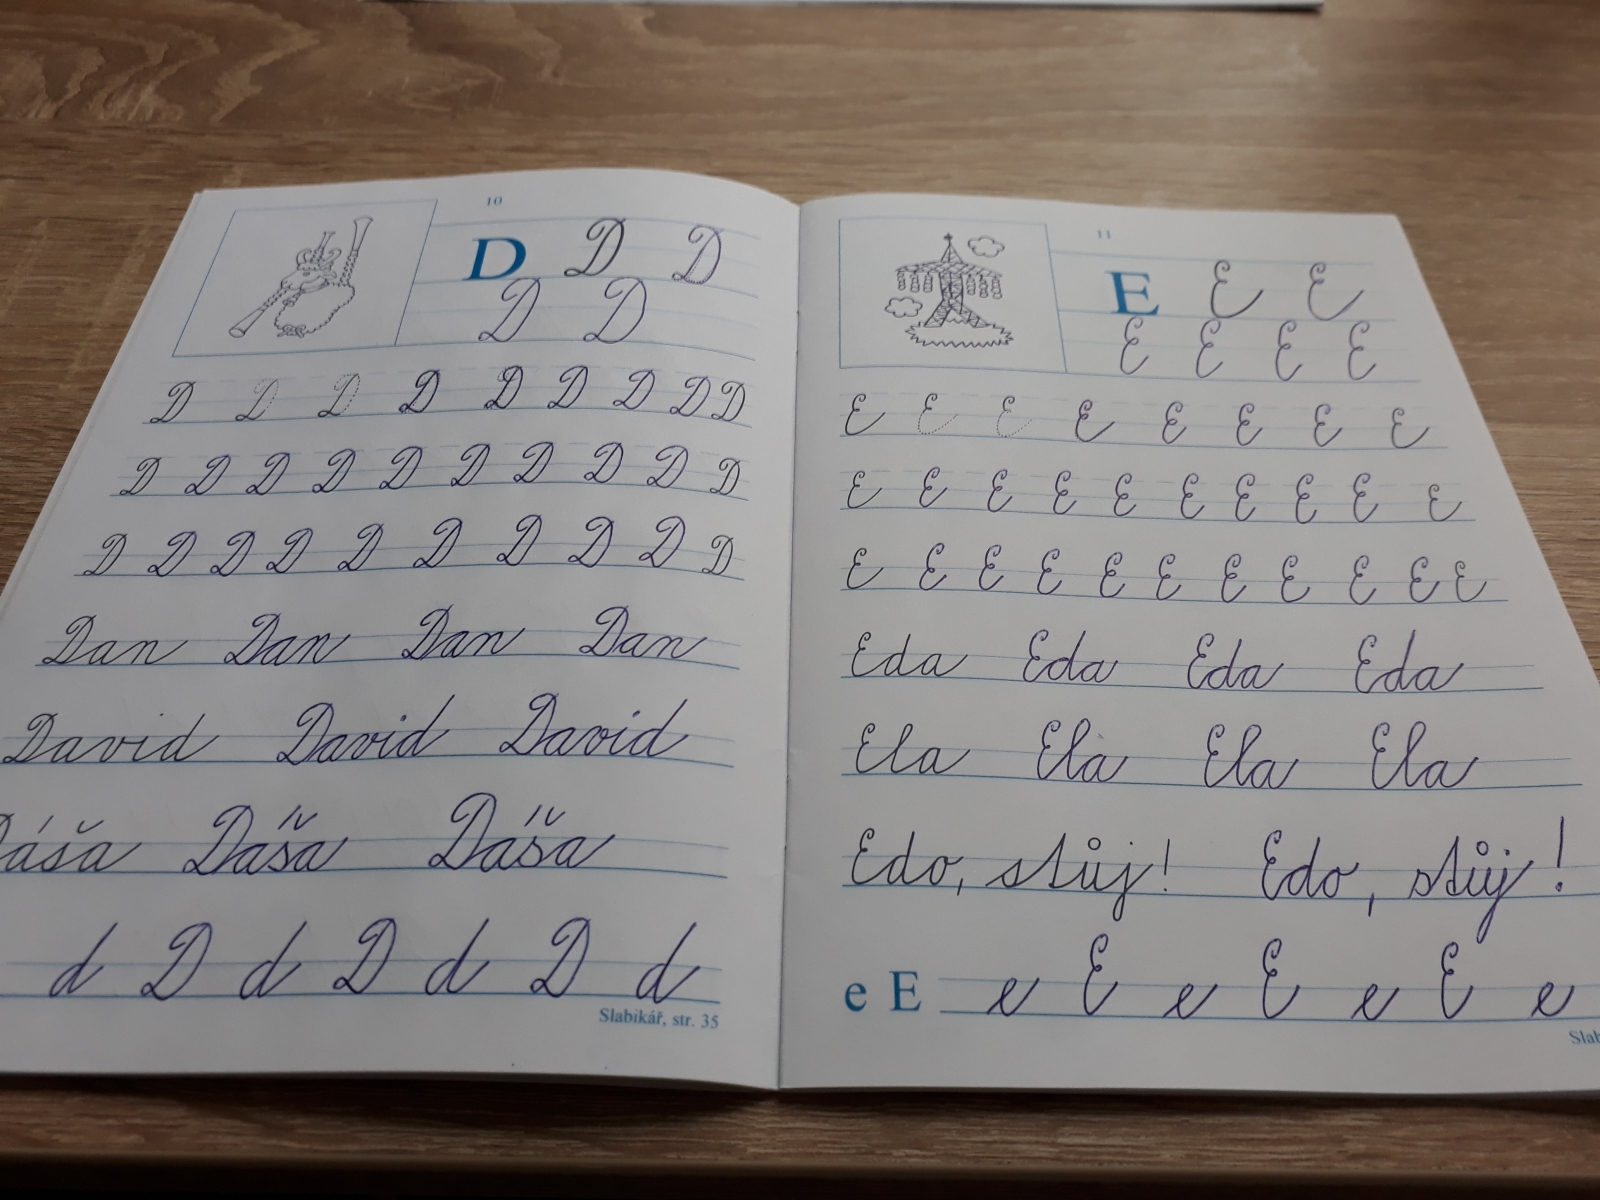 10
D D D
D D
D D D D D D D D D
D D D D D D D D D D
D D D D D D D D D D
Dan Dan Dan Dan
David David David
Dáša Dáša Dáša
d D d D d D d
Slabikář, str. 35
11
E E E
E E E E
E E E E E E E E
E E E E E E E E E E
E E E E E E E E E E E
Eda Eda Eda Eda
Ela Ela Ela Ela
Edo, stůj! Edo, stůj!
e E e E e E e E e